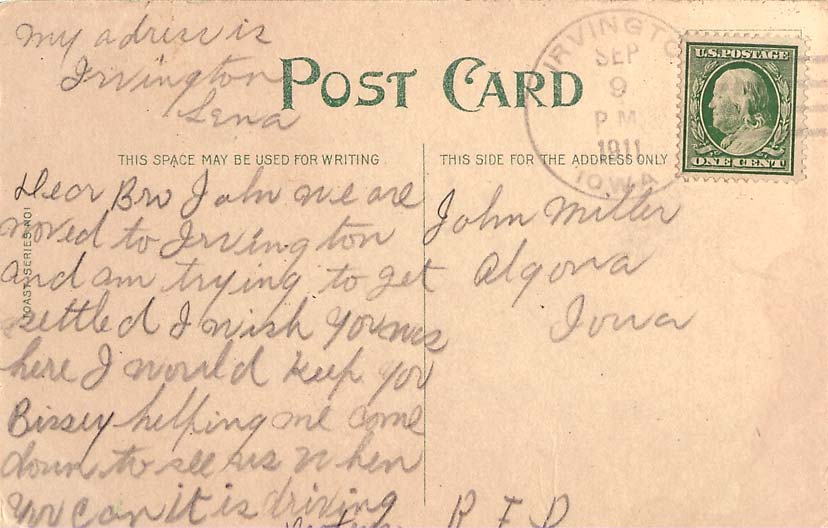 My adress is
Irvington
Lena
POST CARD
IRVINGTON
SEP
9
P.M.
1911
IOWA
U.S. POSTAGE
ONE CENT
THIS SPACE MAY BE USED FOR WRITING
THIS SIDE FOR THE ADDRESS ONLY
Dear Bro John we are
moved to Irvington
and am trying to get
settled I wish you was
here I would keep you
Bissey helping me come
down to see us when
you can it is driving
John Miller
Algona
Iowa
R F D